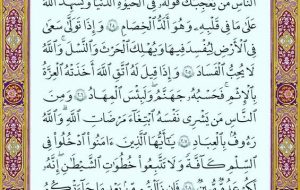 ٱلنَّاسِ مَن يُعْجِبُكَ قَوْلُهُۥ فِى ٱلْحَيَوٰةِ ٱلدُّنْيَا وَيُشْهِدُ ٱللَّهَ
عَلَىٰ مَا فِى قَلْبِهِۦ وَهُوَ أَلَدُّ ٱلْخِصَامِ ۝ وَإِذَا تَوَلَّىٰ سَعَىٰ
فِى ٱلْأَرْضِ لِيُفْسِدَ فِيهَا وَيُهْلِكَ ٱلْحَرْثَ وَٱلنَّسْلَ ۗ وَٱللَّهُ
لَا يُحِبُّ ٱلْفَسَادَ ۝ وَإِذَا قِيلَ لَهُ ٱتَّقِ ٱللَّهَ أَخَذَتْهُ ٱلْعِزَّةُ
بِٱلْإِثْمِ ۚ فَحَسْبُهُۥ جَهَنَّمُ ۚ وَلَبِئْسَ ٱلْمِهَادُ ۝ وَمِنَ
ٱلنَّاسِ مَن يَشْرِى نَفْسَهُ ٱبْتِغَآءَ مَرْضَاتِ ٱللَّهِ ۗ وَٱللَّهُ
رَءُوفٌۢ بِٱلْعِبَادِ ۝ يَـٰٓأَيُّهَا ٱلَّذِينَ ءَامَنُوا۟ ٱدْخُلُوا۟ فِى
ٱلسِّلْمِ كَآفَّةً وَلَا تَتَّبِعُوا۟ خُطُوَٰتِ ٱلشَّيْطَـٰنِ ۚ إِنَّهُۥ
لَكُمْ عَدُوٌّ مُّبِينٌ ۝ فَإِن زَلَلْتُم مِّنۢ بَعْدِ مَا جَآءَتْكُمُ